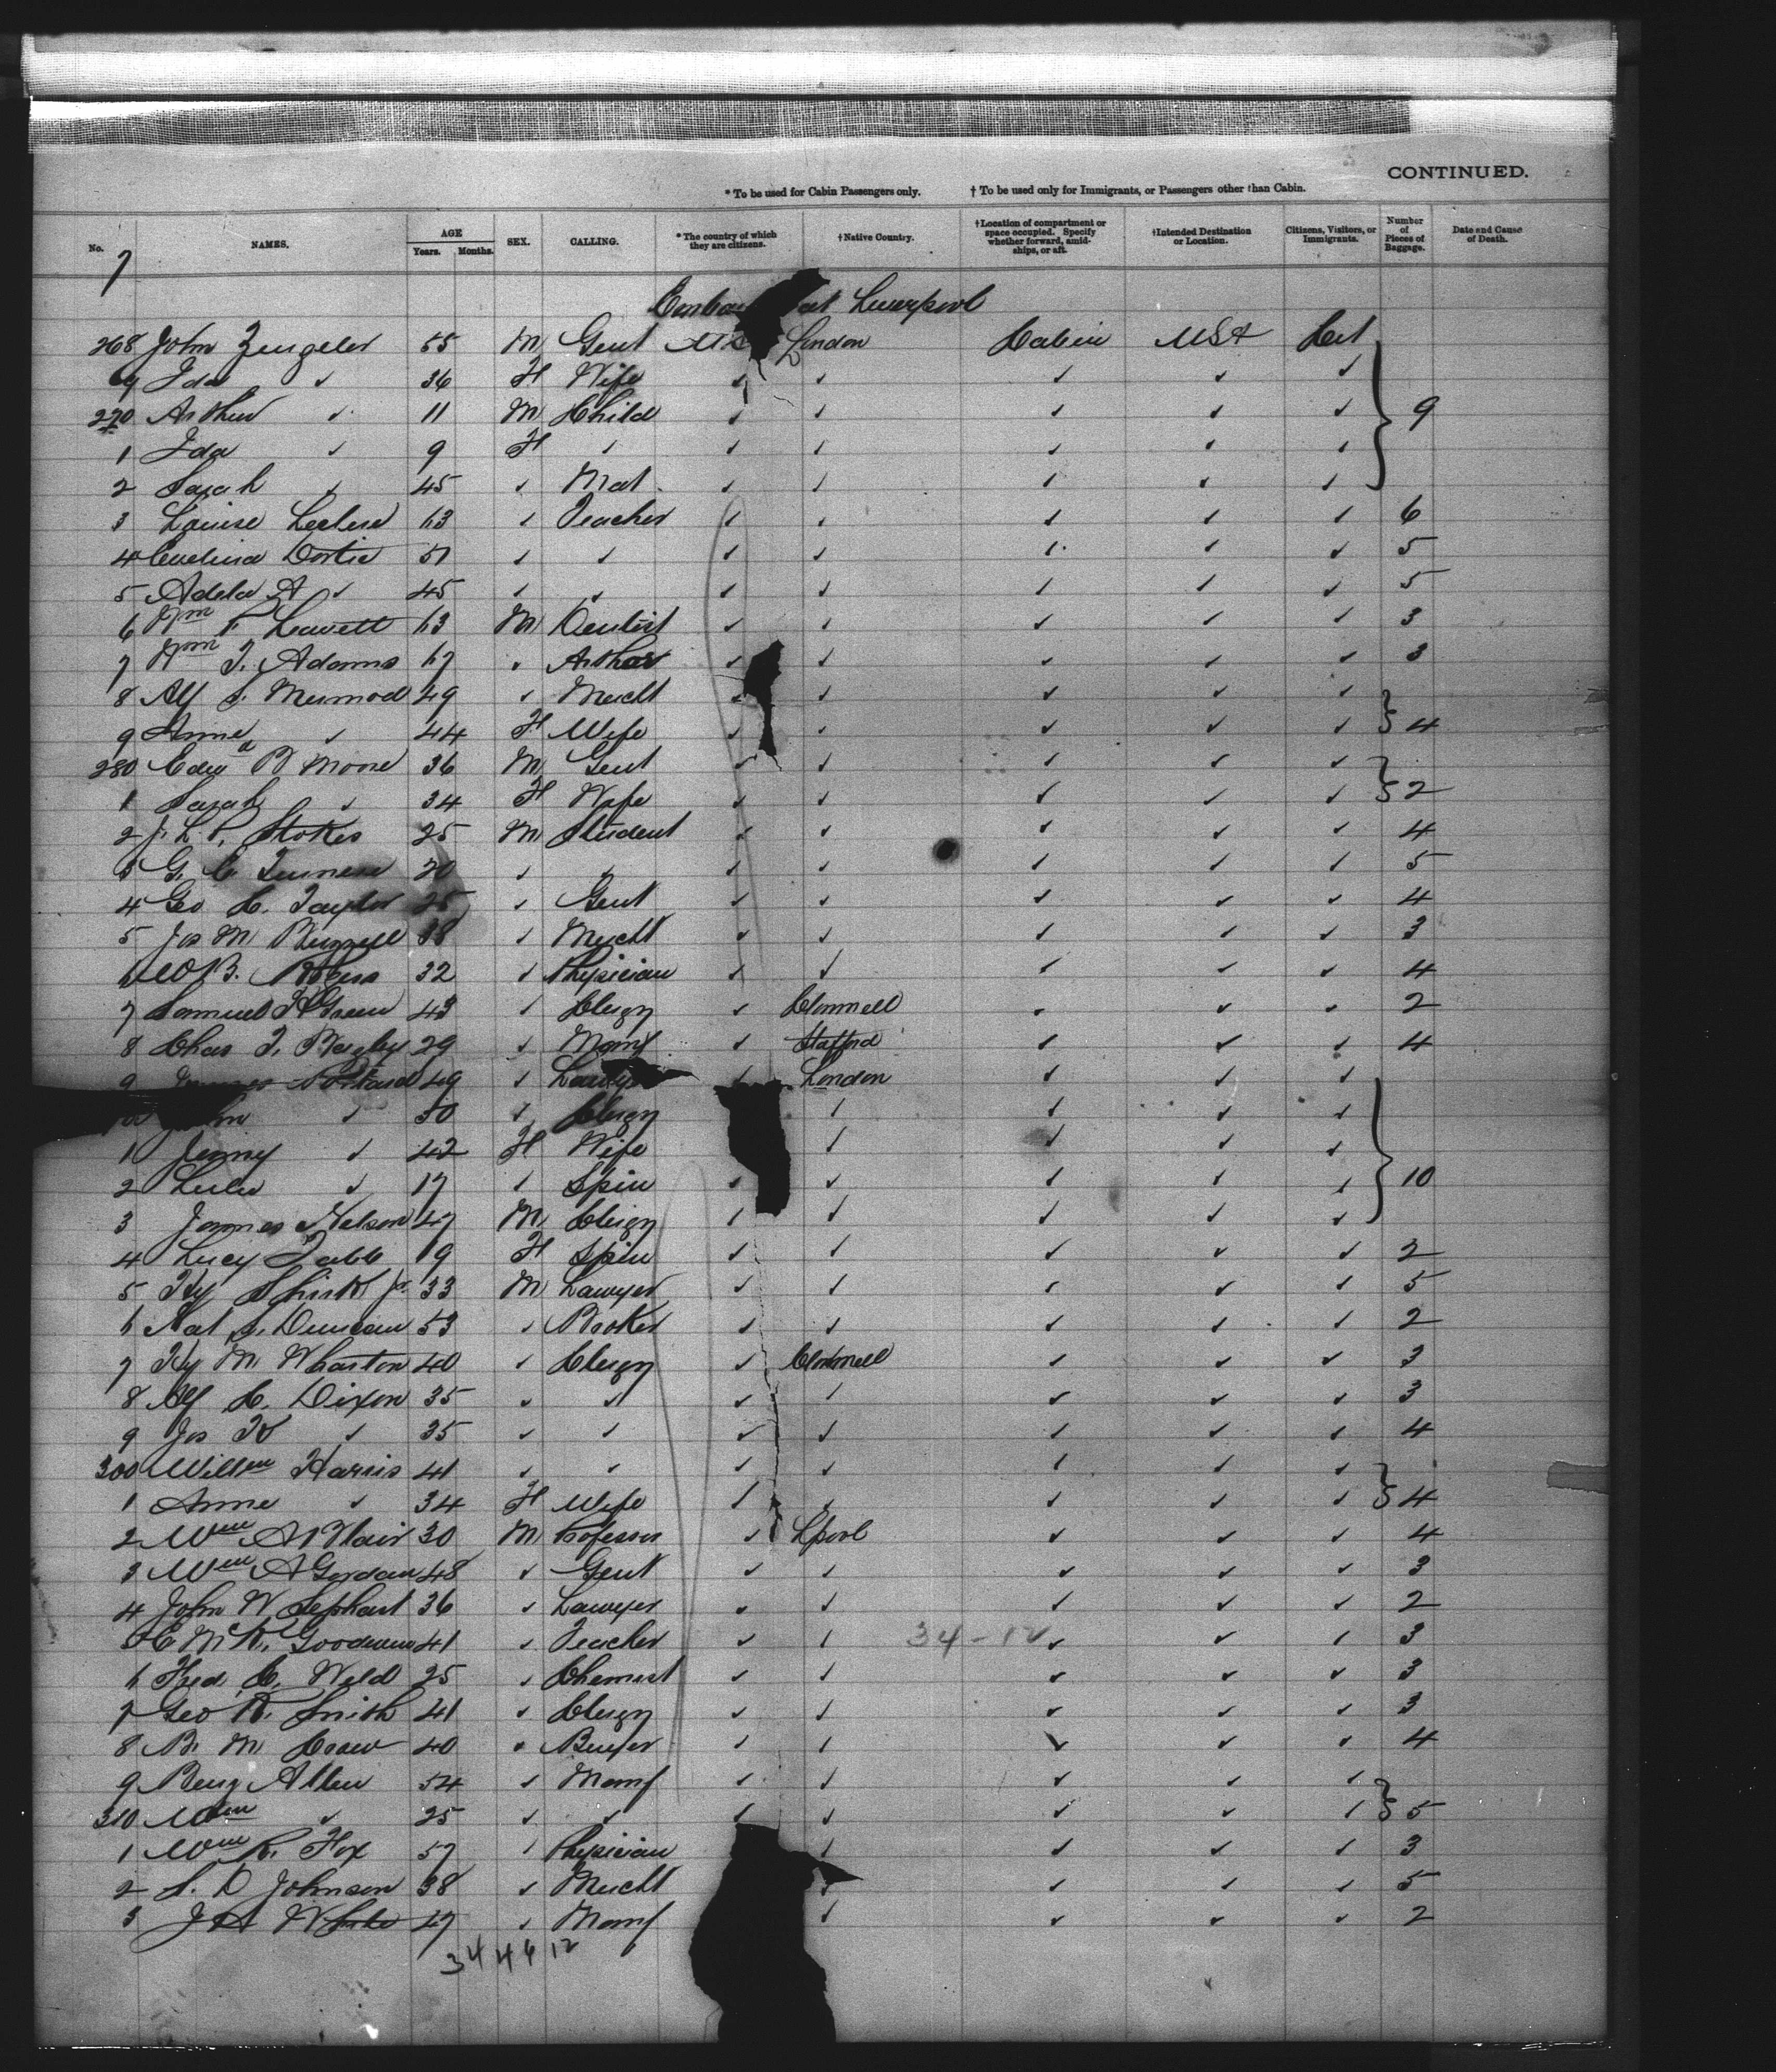 CONTINUED.
* To be used for Cabin Passengers only. † To be used only for Immigrants, or Passengers other than Cabin.
No. NAMES. AGE Years. Months. SEX. CALLING. * The country of which they are citizens. † Native Country. † Location of compartment or space occupied. Specify whether forward, amidships, or aft. † Intended Destination or Location. Citizens, Visitors, or Immigrants. Number of Pieces of Baggage. Date and Cause of Death.
7
at Liverpool
268 John Zengeler 55 M Gent London Cabin USA
9 Ida ✓ 36 F Wife ✓ ✓ ✓ ✓ ✓
270 Arthur ✓ 11 M Child ✓ ✓ ✓ ✓ ✓ 9
1 Ida ✓ 9 F ✓ ✓ ✓ ✓ ✓ ✓
2 Sarah ✓ 45 ✓ Mat. ✓ ✓ ✓ ✓ ✓
3 Louise 63 ✓ Teacher ✓ ✓ ✓ ✓ ✓ 6
4 Evelina Dortic 51 ✓ ✓ ✓ ✓ ✓ ✓ ✓ 5
5 Adela A ✓ 45 ✓ ✓ ✓ ✓ ✓ ✓ ✓ 5
6 Wm Leavett 63 M Dentist ✓ ✓ ✓ ✓ ✓ 3
7 Wm T. Adams 67 ✓ Author ✓ ✓ ✓ ✓ ✓ 3
8 Alf S. Mermod 49 ✓ Mercht ✓ ✓ ✓ ✓ ✓
9 Anna ✓ 44 F Wife ✓ ✓ ✓ ✓ ✓ 4
280 Edw B Moore 36 M Gent ✓ ✓ ✓ ✓ ✓
1 Sarah ✓ 34 F Wife ✓ ✓ ✓ ✓ ✓ 2
2 J. L. P. Stokes 25 M Student ✓ ✓ ✓ ✓ ✓ 4
3 G. C. 20 ✓ ✓ ✓ ✓ ✓ ✓ ✓ 5
4 Geo C. Taylor 25 ✓ Gent ✓ ✓ ✓ ✓ ✓ 4
5 Jos M 38 ✓ Mercht ✓ ✓ ✓ ✓ ✓ 3
6 W B. 32 ✓ Physician ✓ ✓ ✓ ✓ ✓ 4
7 Samuel H Green 43 ✓ Clergy ✓ Clonmell ✓ ✓ ✓ 2
8 Chas T. Bagley 29 ✓ Manf ✓ Stafford ✓ ✓ ✓ 4
9 49 ✓ Lawyer ✓ London ✓ ✓ ✓
✓ 50 ✓ Clergy ✓ ✓ ✓ ✓
1 Jenny ✓ 42 F Wife ✓ ✓ ✓ ✓
2 Lulu ✓ 17 ✓ Spin ✓ ✓ ✓ ✓ ✓ 10
3 James Nelson 47 M Clergy ✓ ✓ ✓ ✓ ✓
4 Lucy Tabb 19 F Spin ✓ ✓ ✓ ✓ ✓ 2
5 Hy Shirk Jr. 33 M Lawyer ✓ ✓ ✓ ✓ ✓ 5
6 Nat J. Duncan 53 ✓ Broker ✓ ✓ ✓ ✓ ✓ 2
7 Hy M Wharton 40 ✓ Clergy ✓ Clonmell ✓ ✓ ✓ 3
8 Alf C. Dixon 35 ✓ ✓ ✓ ✓ ✓ ✓ ✓ 3
9 Jos ✓ 35 ✓ ✓ ✓ ✓ ✓ ✓ ✓ 4
300 Willm Harris 41 ✓ ✓ ✓ ✓ ✓ ✓ ✓
1 Anne ✓ 34 F Wife ✓ ✓ ✓ ✓ ✓ 4
2 Wm A Blair 30 M Professor ✓ Lpool ✓ ✓ ✓ 4
3 Wm A Gordan 48 ✓ Gent ✓ ✓ ✓ ✓ ✓ 3
4 John W Sephart 36 ✓ Lawyer ✓ ✓ ✓ ✓ ✓ 2
5 Goodwin 41 ✓ Teacher ✓ ✓ 34-12 ✓ ✓ ✓ 3
6 Fred. C. Weld 25 ✓ Chemist ✓ ✓ ✓ ✓ ✓ 3
7 Geo R. Smith 41 ✓ Clergy ✓ ✓ ✓ ✓ ✓ 3
8 B. M. Crow 40 ✓ Buyer ✓ ✓ ✓ ✓ ✓ 4
9 Benj Allen 54 ✓ Manf ✓ ✓ ✓ ✓ ✓
310 Wm ✓ 25 ✓ ✓ ✓ ✓ ✓ ✓ ✓ 5
1 Wm R. Fox 57 ✓ Physician ✓ ✓ ✓ ✓ 3
2 S. D Johnson 38 ✓ Mercht ✓ ✓ ✓ ✓ 5
3 J A White 47 ✓ Manf ✓ ✓ ✓ ✓ 2
34 46 12